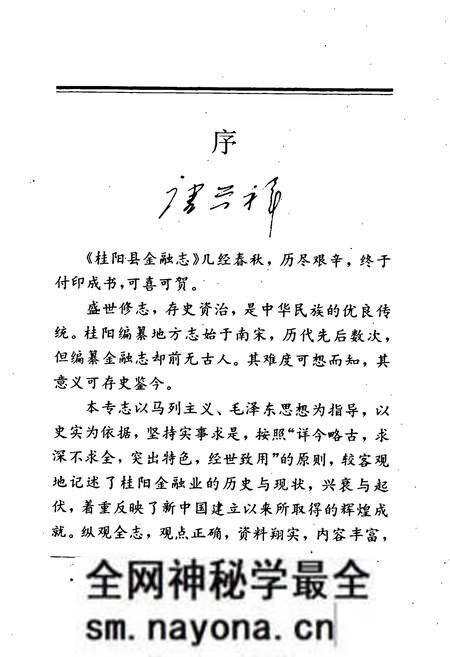 序
唐兴祥
《桂阳县金融志》几经春秋，历尽艰辛，终于
付印成书，可喜可贺。
盛世修志，存史资治，是中华民族的优良传
统。桂阳编纂地方志始于南宋，历代先后数次，
但编纂金融志却前无古人。其难度可想而知，其
意义可存史鉴今。
本专志以马列主义、毛泽东思想为指导，以
史实为依据，坚持实事求是，按照“详今略古，求
深不求全，突出特色，经世致用”的原则，较客观
地记述了桂阳金融业的历史与现状，兴衰与起
伏，着重反映了新中国建立以来所取得的辉煌成
就。纵观全志，观点正确，资料翔实，内容丰富，
全网神秘学最全
sm.nayona.cn